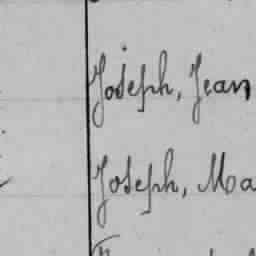 Joseph, Jean
Joseph, Ma